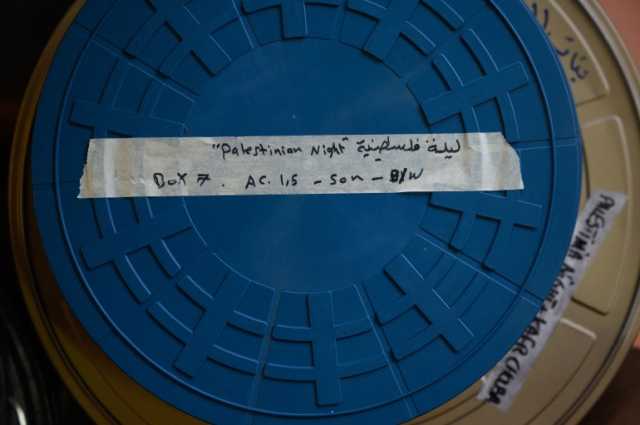 "Palestinian Night" ليلة فلسطينية
Box 7. AC. 1,5 - Son - B/W
PALESTINIA NIGHT + KFER CHOUBA